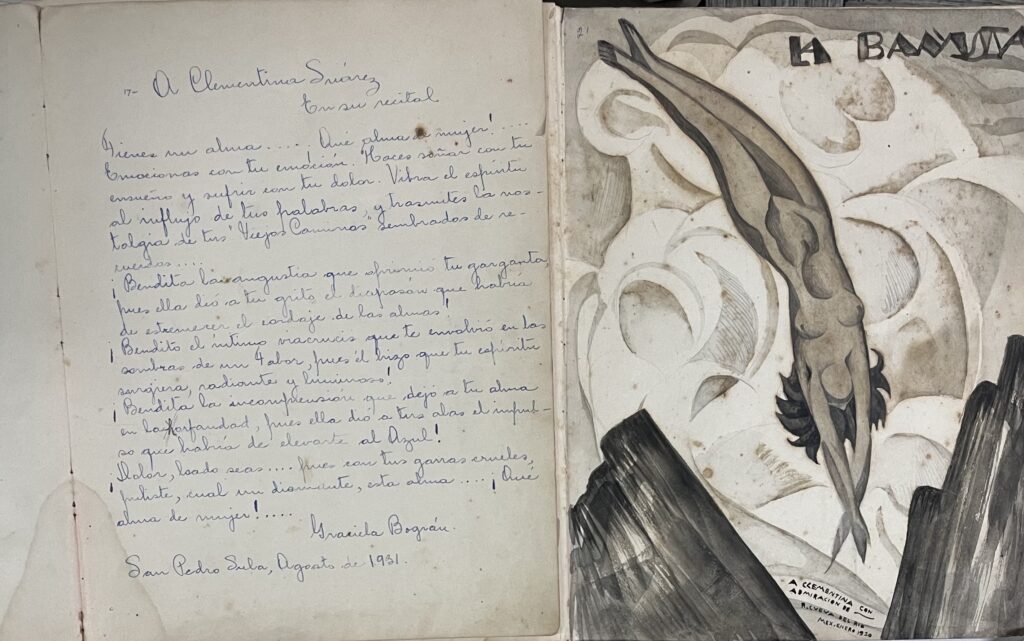 17- A Clementina Suárez
En su recital
Tienes un alma..... Qué alma de mujer!.....
Emocionas con tu emoción. Haces soñar con tu
ensueño y sufrir con tu dolor. Vibra el espíritu
al influjo de tus palabras, y trasmites la nos-
talgia de tus "Viejos Caminos" sembrados de re-
cuerdos....
¡Bendita la angustia que oprimió tu garganta,
pues ella dió a tu grito el diapasón que habría
de estremecer el cordaje de las almas!
¡Bendito el íntimo viacrucis que te envolvió en las
sombras de un Tabor, pues él hizo que tu espíritu
surgiera, radiante y luminoso!
¡Bendita la incomprensión que dejó a tu alma
en la orfandad, pues ella dió a tus alas el impul-
so que habría de elevarte al Azul!
¡Dolor, loado seas.... pues con tus garras crueles,
puliste, cual un diamante, esta alma.... ¡Qué
alma de mujer!.....
Graciela Bográn.
San Pedro Sula, Agosto de 1931.
21
LA BAÑISTA
A CLEMENTINA CON
ADMIRACION DE
R. CUEVA DEL RIO
MEX. ENERO 1930